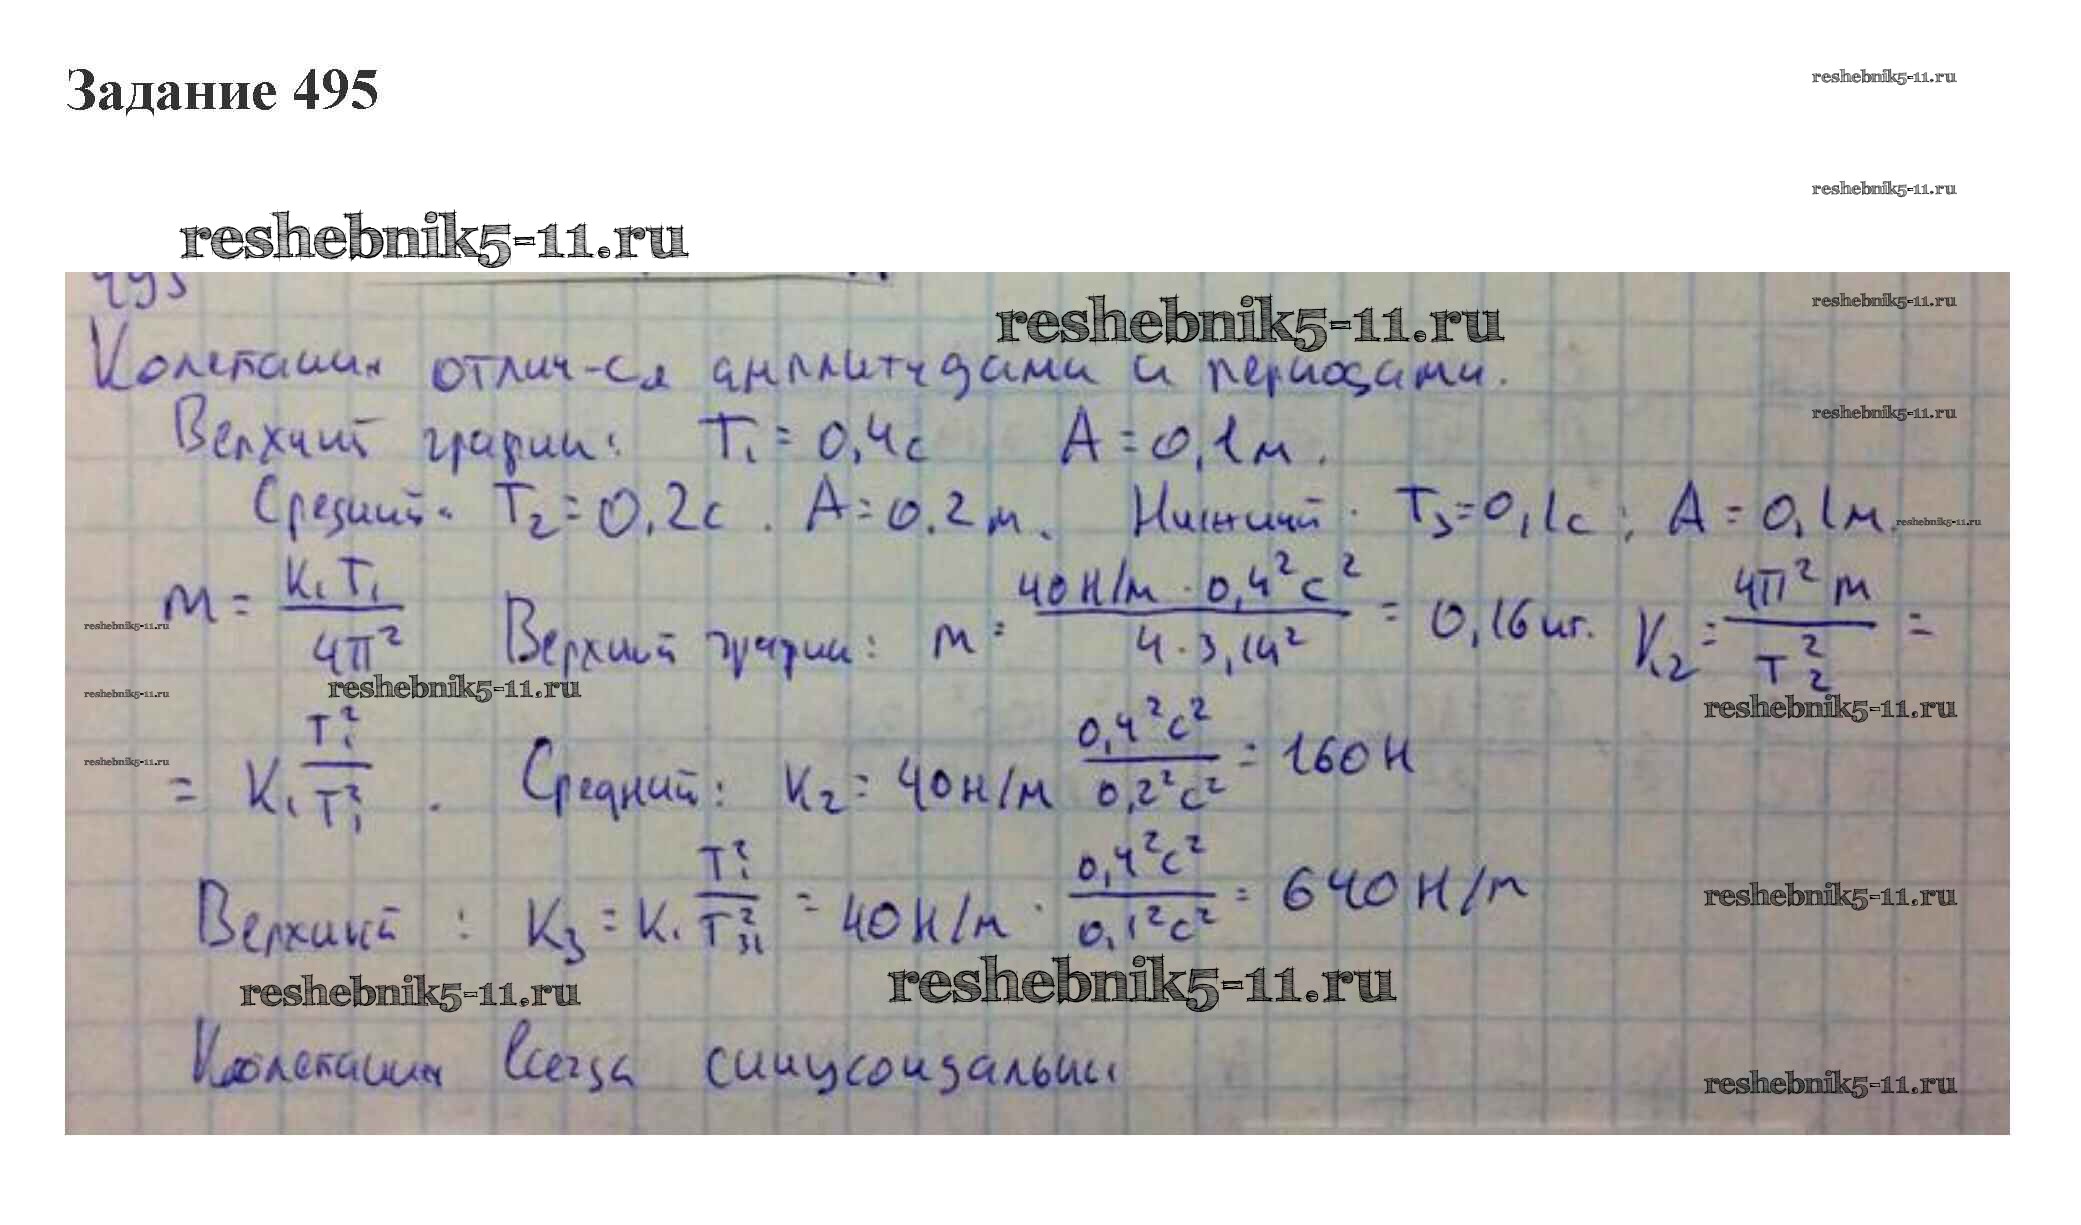 Задание 495
reshebnik5-11.ru
reshebnik5-11.ru
reshebnik5-11.ru
495
reshebnik5-11.ru
reshebnik5-11.ru
Колебания отлич-ся амплитудами и периодами.
reshebnik5-11.ru
Верхний график: T₁ = 0,4с A = 0,1м.
Средний: T₂ = 0,2с. A = 0.2м. Нижний: T₃ = 0,1с; A = 0,1м.
reshebnik5-11.ru
m = K₁T₁/4π² Верхний график: m = 40Н/м · 0,4²с²/4 · 3,14² = 0,16кг. K₂ = 4π²m/T₂² =
reshebnik5-11.ru
reshebnik5-11.ru
reshebnik5-11.ru
reshebnik5-11.ru
= K₁ T₁²/T₁². Средний: K₂ = 40Н/м 0,4²с²/0,2²с² = 160Н
reshebnik5-11.ru
Верхний: K₃ = K₁ T₁²/T₃₁² = 40Н/м · 0,4²с²/0,1²с² = 640Н/м
reshebnik5-11.ru
reshebnik5-11.ru
reshebnik5-11.ru
Колебания всегда синусоидальны
reshebnik5-11.ru